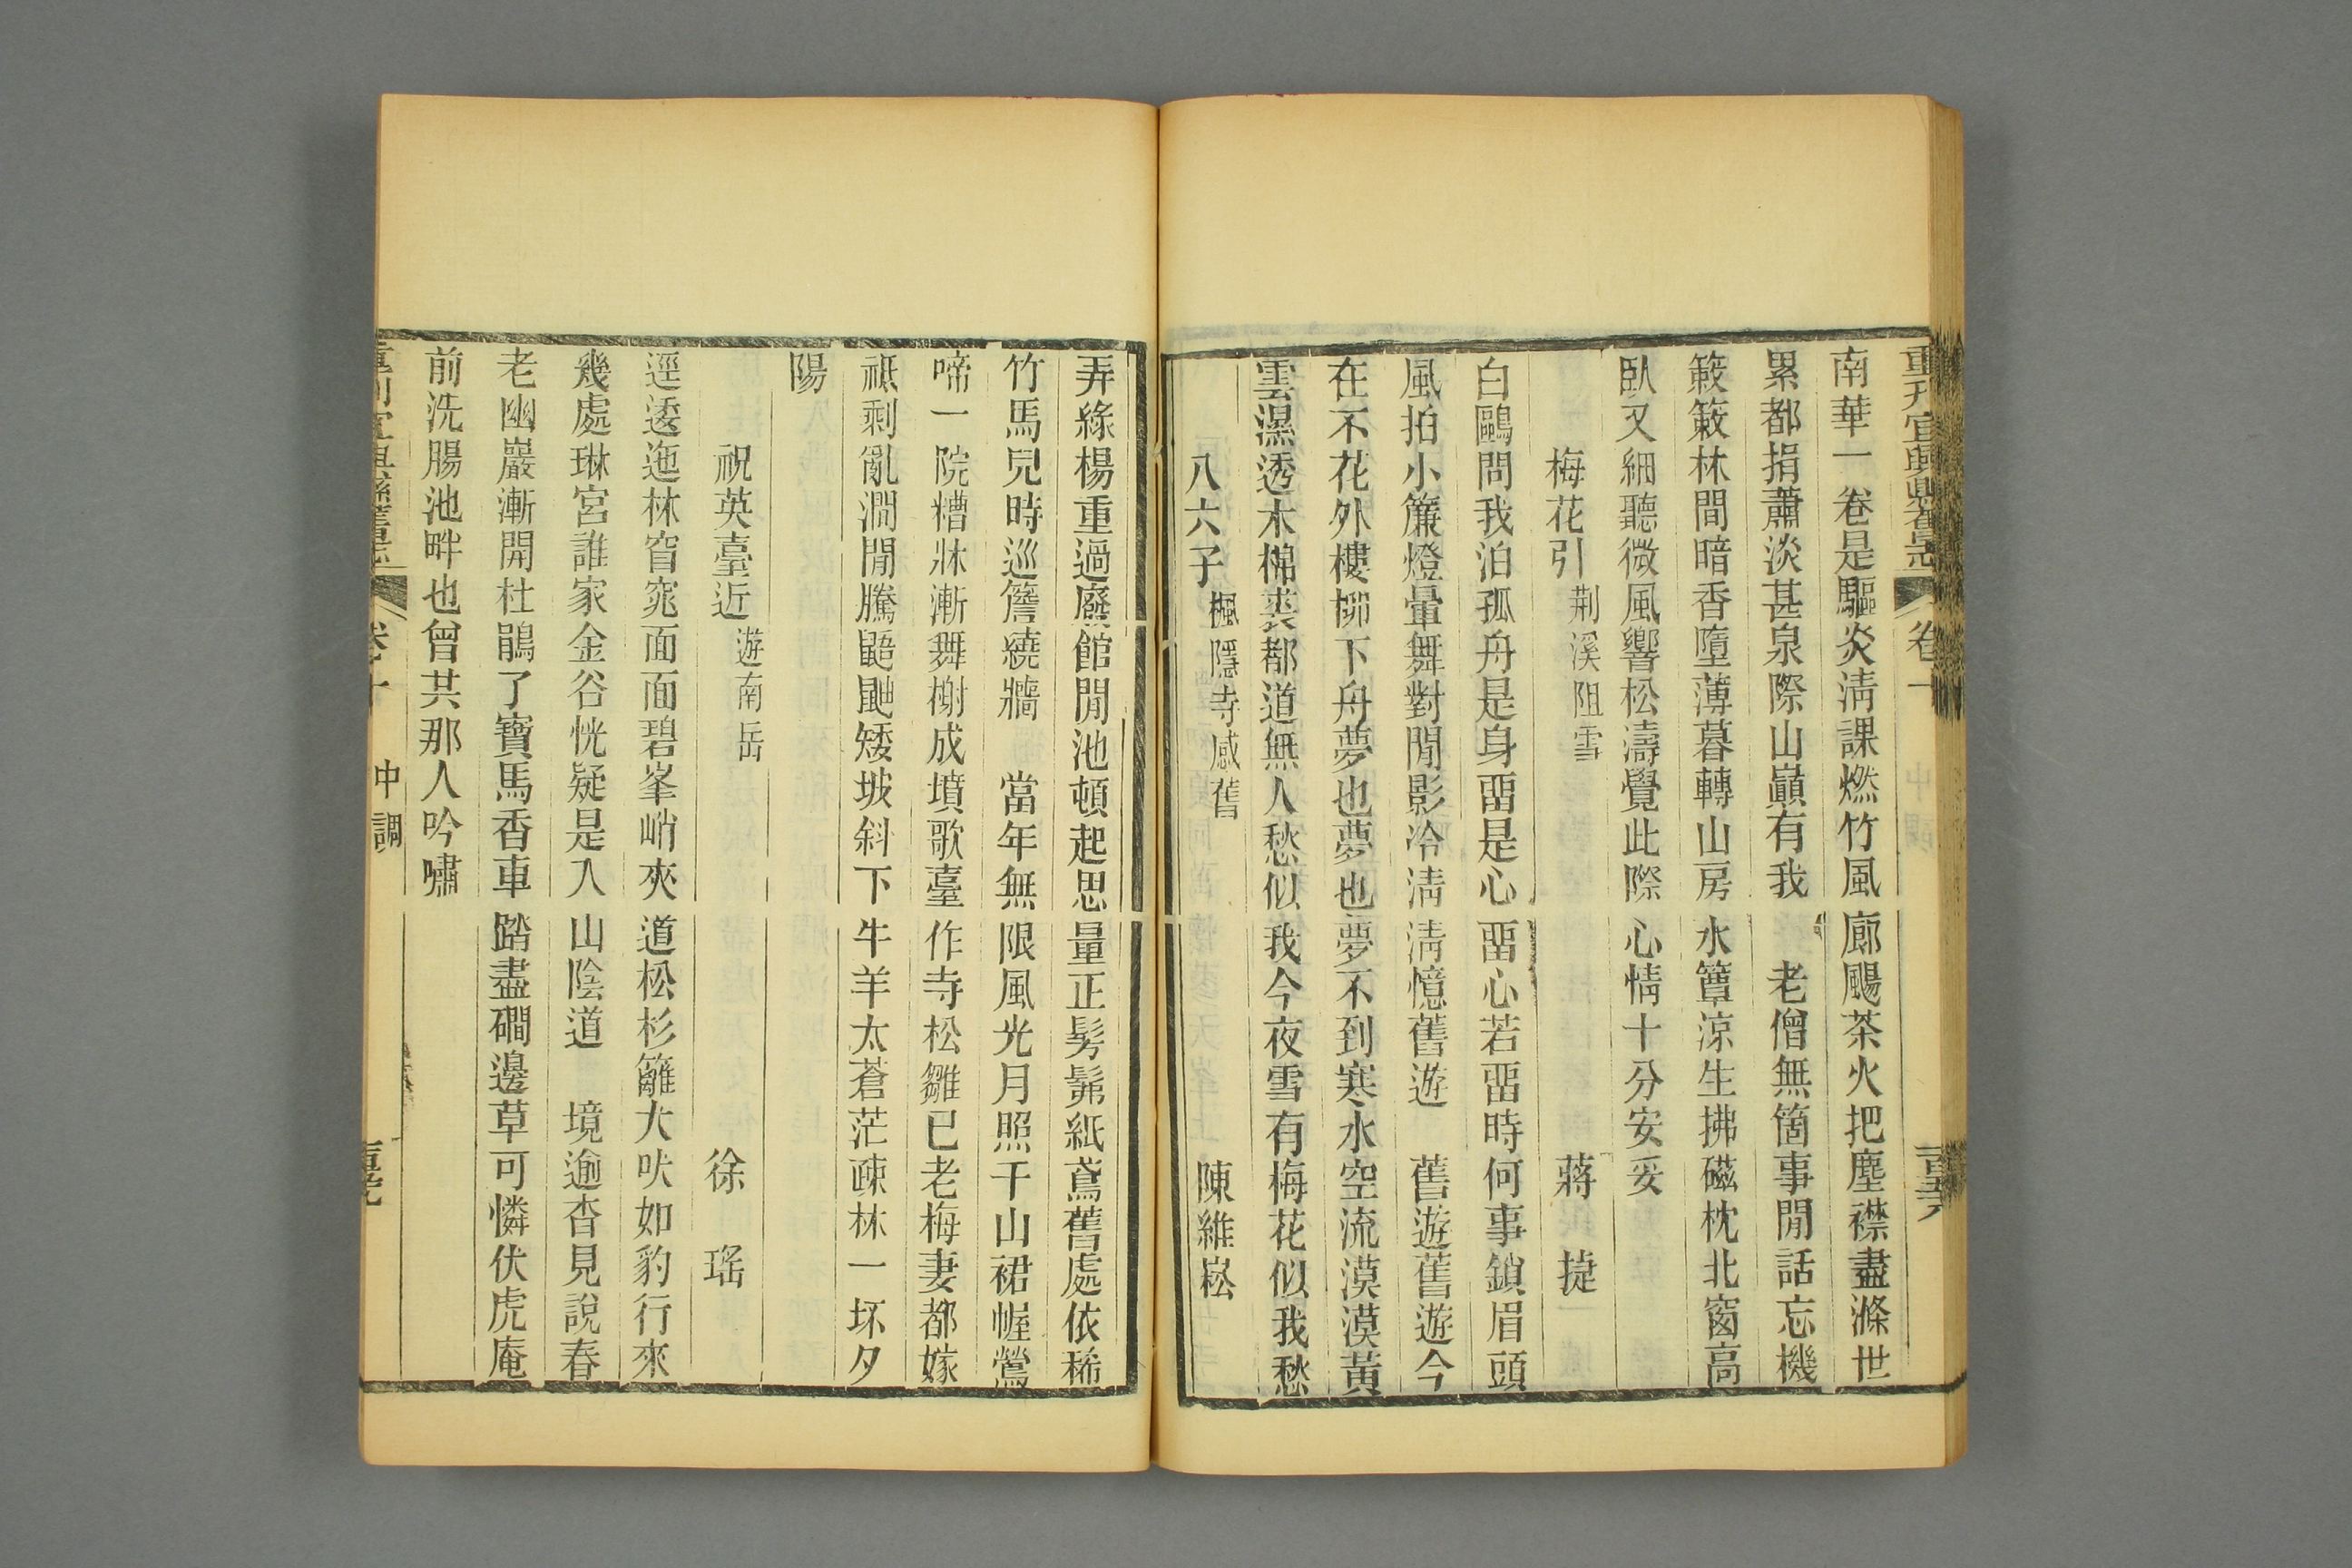 重刋宜興縣舊志 卷十
南華一卷是驅炎淸課燃竹風廊颺茶火把塵襟盡滌世
累都捐蕭淡甚泉際山巔有我 老僧無箇事閒話忘機
簌簌林間暗香墮薄暮轉山房水簟涼生拂磁枕北窗高
臥又細聽微風響松濤覺此際心情十分安妥
梅花引 荆溪阻雪 蔣 㨗
白鷗問我泊孤舟是身畱是心畱心若畱時何事鎖眉頭
風拍小簾燈暈舞對閒影冷淸淸憶舊遊 舊遊舊遊今
在不花外樓栁下舟夢也夢也夢不到寒水空流漠漠黃
雲濕透木棉裘都道無人愁似我今夜雪有梅花似我愁
八六子 楓隱寺感舊 陳維崧
弄綠楊重過廢館閒池頓起思量正髣髴紙鳶舊處依稀
竹馬兒時巡簷繞牆 當年無限風光月照千山裙幄鶯
啼一院糟牀漸舞榭成墳歌臺作寺松雛已老梅妻都嫁
祗剩亂澗閒騰鼯鼬矮坡斜下牛羊太蒼茫疎林一坏夕
陽
祝英臺近 遊南岳 徐 瑤
逕逶迤林窅窕面面碧峯峭夾道松杉籬犬吠如豹行來
幾處琳宮誰家金谷恍疑是入山陰道 境逾杳見說春
老幽巖漸開杜鵑了寶馬香車踏盡磵邊草可憐伏虎庵
前洗腸池畔也曾共那人吟嘯
重刋宜興縣舊志 卷十 中調